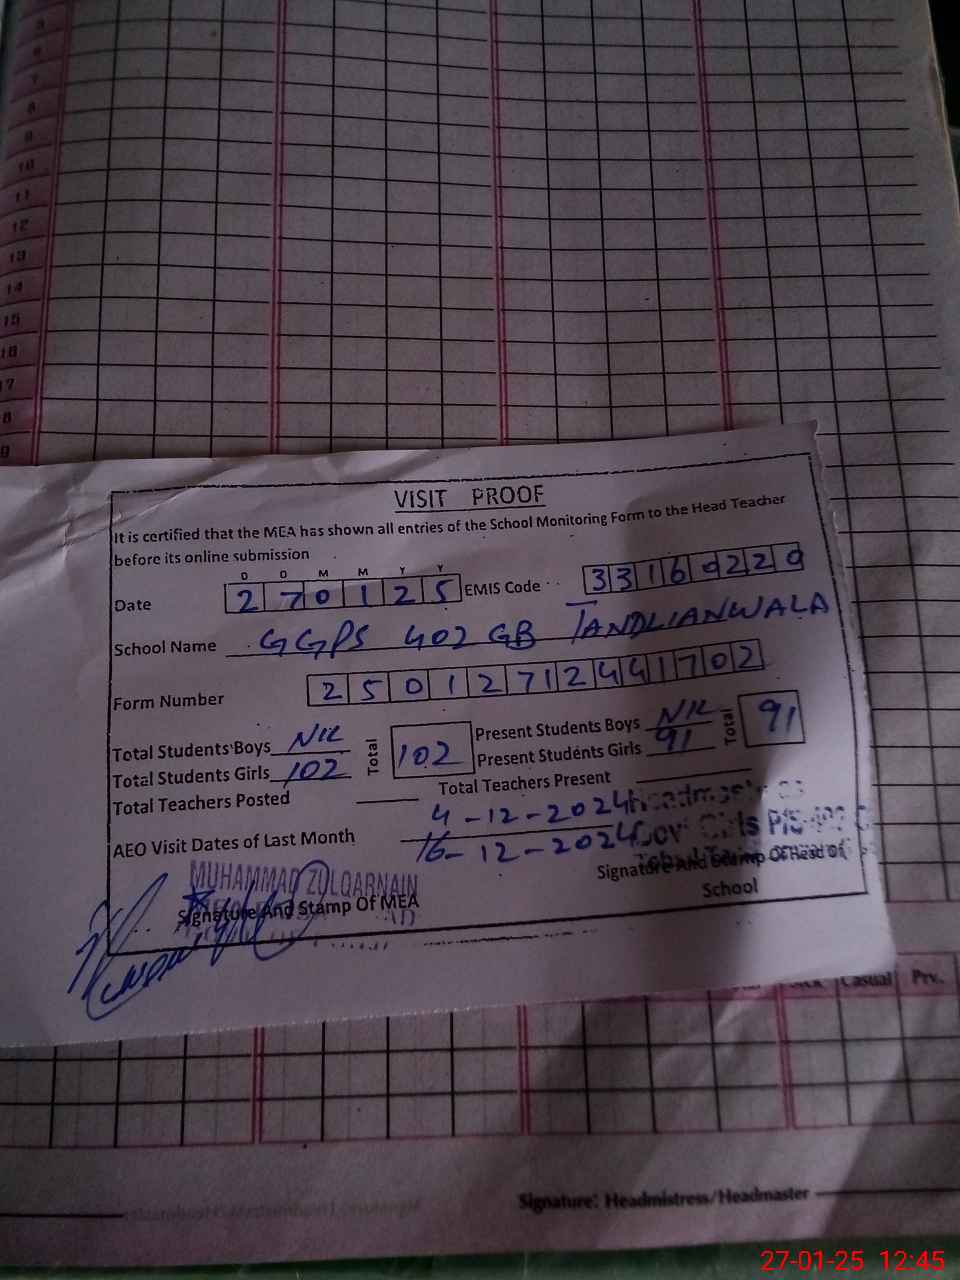 5
6
7
8
9
10
11
12
13
14
15
16
17
8
9
VISIT PROOF
It is certified that the MEA has shown all entries of the School Monitoring Form to the Head Teacher
before its online submission
D D M M Y Y
Date 2 7 0 1 2 5 EMIS Code 3 3 1 6 0 2 2 0
School Name GGPS 402 GB TANDLIANWALA
Form Number 2 5 0 1 2 7 1 2 4 4 1 7 0 2
Total Students Boys NIL Total 102 Present Students Boys NIL Total 91
Total Students Girls 102 Present Students Girls 91
Total Teachers Posted Total Teachers Present
4-12-2024
AEO Visit Dates of Last Month 16-12-2024
Gov Girls P/S
MUHAMMAD ZULQARNAIN
Signature And Stamp Of MEA
Signature And Stamp Of Head Of
School
Casual Prv.
Signature: Headmistress/Headmaster
27-01-25 12:45